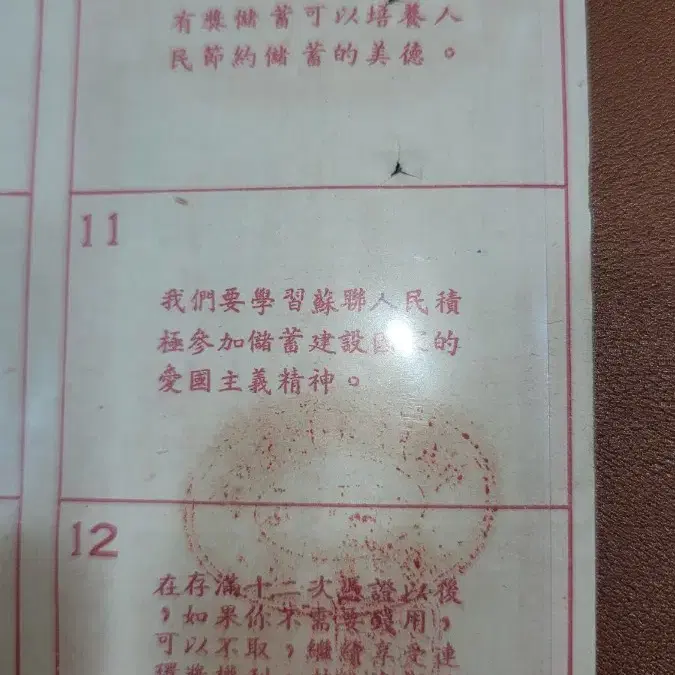 有獎儲蓄可以培養人
民節約儲蓄的美德。
11
我們要學習蘇聯人民積
極參加儲蓄建設國家的
愛國主義精神。
12
在存滿十二次憑證以後
，如果你不需要錢用，
可以不取，繼續享受連
環獎權利